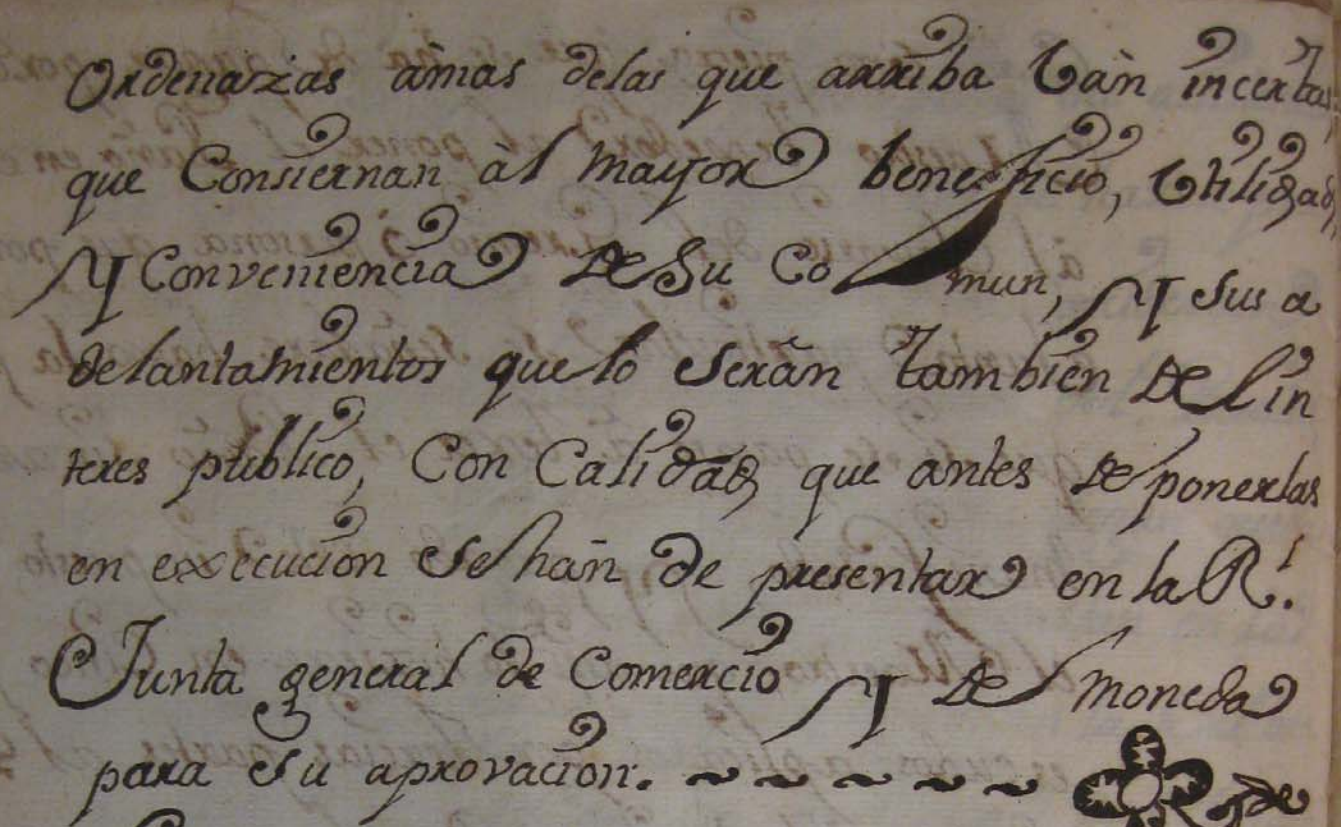 Ordenazas àmas delas que arriba Vàn incertas,
que Consiernan àl mayor beneficio, Vtilidad,
Y Conveniencia De Su Comun, Y sus a
delantamientos que lo Seràn tambien Del in
teres publico, Con Calidad que antes De ponerlas
en execucion Se hàn de presentar en la Rl.
Junta general de Comercio Y De Moneda
para Su aprovacion.